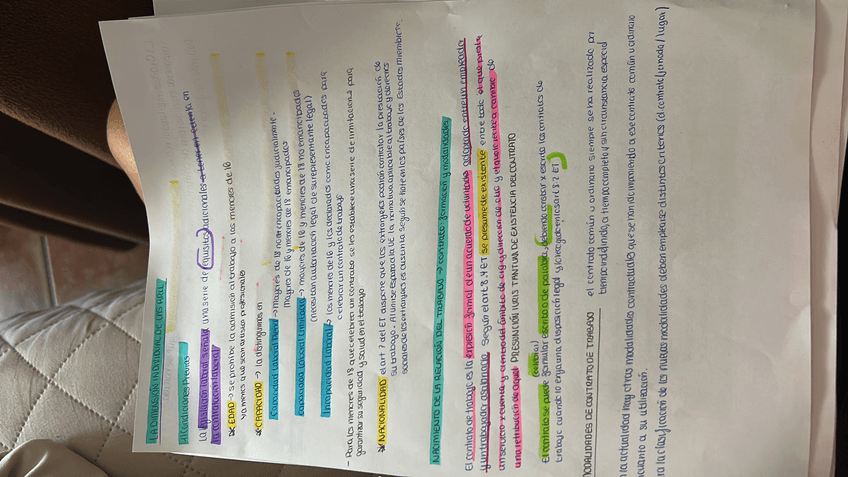 LA DIMENSIÓN INDIVIDUAL DE LAS RRLL
1. Condiciones Previas
La legislación laboral señala una serie de requisitos adicionales a tener en cuenta en
la contratación laboral
* EDAD → se prohíbe la admisión al trabajo a los menores de 16
ya menos que sean artistas profesionales
* CAPACIDAD → la distinguimos en
Capacidad Laboral Plena → Mayores de 18 no incapacitados judicialmente.
Mayores de 16 y menores de 18 emancipados
Capacidad Laboral Limitada → mayores de 16 y menores de 18 no emancipados
(necesitan autorización legal de su representante legal)
Incapacidad Laboral → los menores de 16 y los declarados como incapacitados para
celebrar un contrato de trabajo
- Para los menores de 18 que celebren un contrato se les establece una serie de limitaciones para
garantizar su seguridad y salud en el trabajo
* NACIONALIDAD el art 7 del ET dispone que los extranjeros podrán contratar la prestación de
su trabajo. Al unirse España a la UE la normativa aplicable al trabajo y derechos
sociales de los extranjeros es distinta según se trate en los países de los Estados Miembros.
NACIMIENTO DE LA RELACIÓN DEL TRABAJO → contrato: formación y modalidades
El contrato de trabajo es la expresión formal de un acuerdo de voluntades adoptado entre un empleador
y un trabajador asalariado. Según el art 8.1 ET se presume de existente entre todo el que presta
un servicio x cuenta y dentro del ámbito de org y dirección de otro y el que lo recibe a cambio de
una retribución de aquel PRESUNCIÓN IURIS TANTUM DE EXISTENCIA DEL CONTRATO
El contrato se puede formular escrito o de palabra, debiendo constar x escrito los contratos de
trabajo cuando lo exija una disposición legal (art 8.2 ET)
MODALIDADES DE CONTRATO DE TRABAJO el contrato común u ordinario siempre se ha realizado por
tiempo indefinido, a tiempo completo y sin circunstancia especial
En la actualidad hay otras modalidades contractuales que se van imponiendo a ese contrato común u ordinario
en cuanto a su utilización.
Para la clasificación de las nuevas modalidades deben emplearse distintos criterios (d. contrato/jornada/lugar)